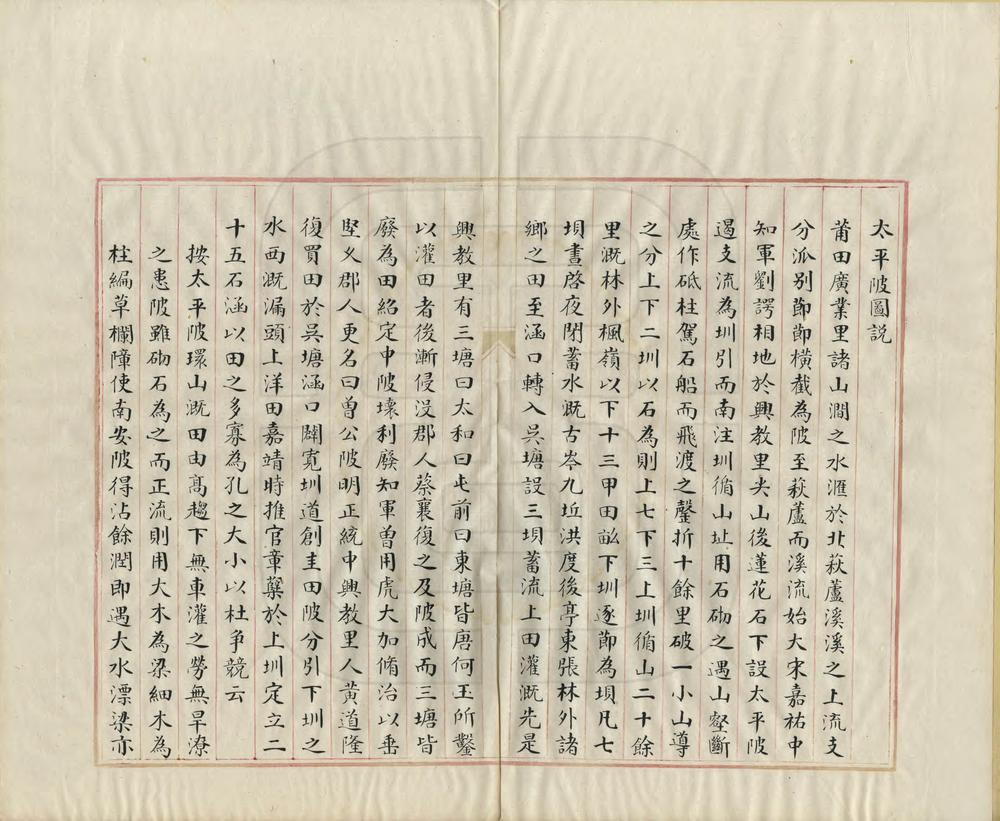 太平陂圖説
莆田廣業里諸山澗之水滙於北萩蘆溪溪之上流支
分派别節節横截為陂至萩蘆而溪流始大宋嘉祐中
知軍劉諤相地於興教里尖山後蓮花石下設太平陂
遏支流為圳引而南注圳循山址用石砌之遇山壑斷
處作砥柱駕石船而飛渡之罄折十餘里破一小山導
之分上下二圳以石為則上七下三上圳循山二十餘
里溉林外楓嶺以下十三甲田畝下圳逐節為埧凡七
埧晝啓夜閉蓄水溉古岑九坵洪度後亭東張林外諸
鄉之田至涵口轉入吳塘設三埧蓄流上田灌溉先是
興教里有三塘曰太和曰屯前曰東塘皆唐何玉所鑿
以灌田者後漸侵没郡人蔡襄復之及陂成而三塘皆
廢為田紹定中陂壞利廢知軍曽用虎大加脩治以垂
堅乆郡人更名曰曽公陂明正統中興教里人黄道隆
復買田於吳塘涵口闢寛圳道創圭田陂分引下圳之
水西溉漏頭上洋田嘉靖時推官章檗於上圳定立二
十五石涵以田之多寡為孔之大小以杜争競云
按太平陂環山溉田由髙趨下無車灌之勞無旱潦
之患陂雖砌石為之而正流則用大木為梁細木為
柱編草欄障使南安陂得沾餘潤即遇大水漂梁亦